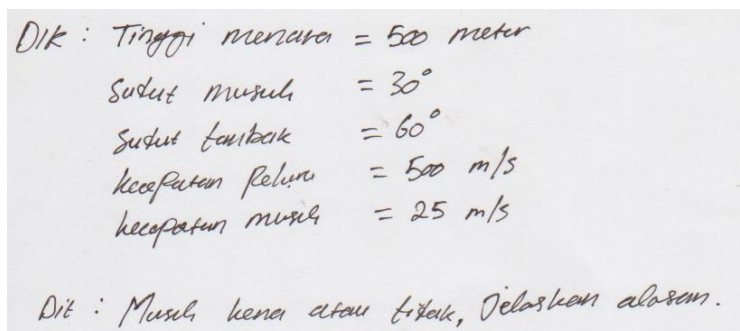 Dik : Tinggi menara = 500 meter
Sudut musuh = 30°
Sudut tembak = 60°
kecepatan Peluru = 500 m/s
kecepatan musuh = 25 m/s
Dit : Musuh kena atau tidak, Jelaskan alasan.